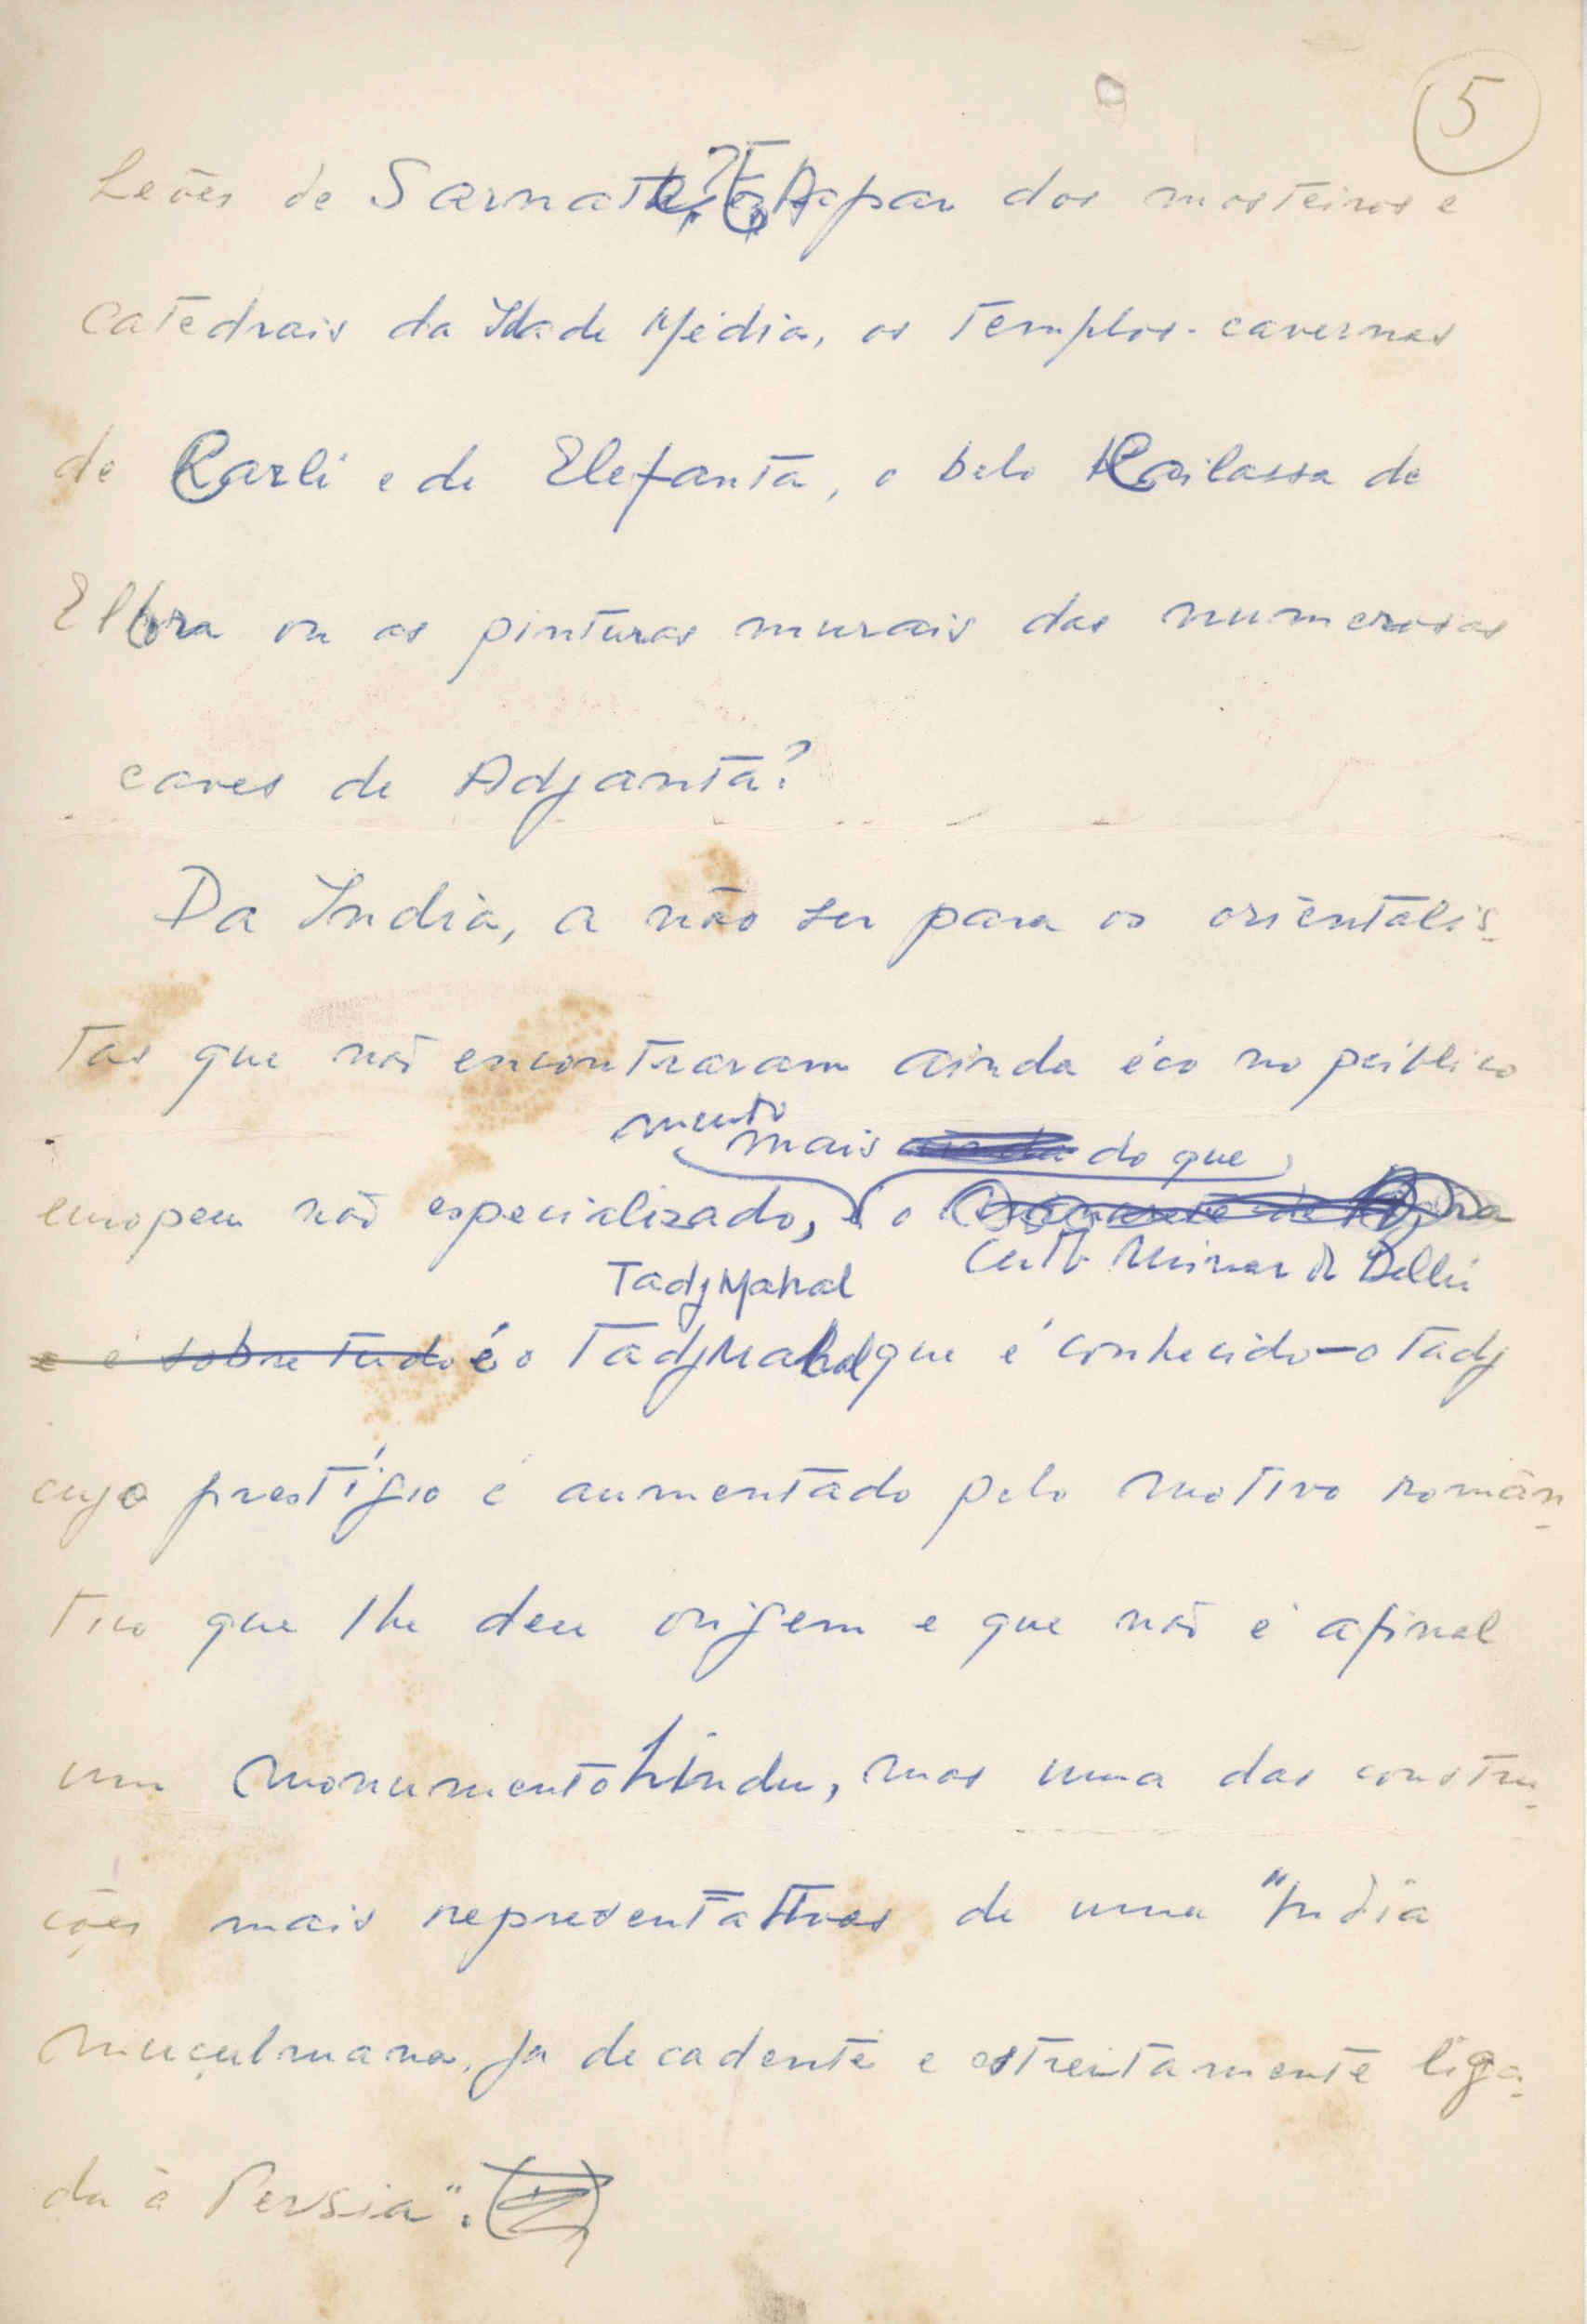 5
Leões de Sarnath? E A par dos mosteiros e
catedrais da Idade Média, os templos-cavernas
de Karli e de Elefanta, o belo Kailassa de
Ellora ou as pinturas murais das numerosas
caves de Adjanta?
Da Índia, a não ser para os orientalis-
tas que não encontraram ainda éco no público
muito mais do que
europeu não especializado, o
Tadj Mahal Cutb Minar de Delhi
e é sobretudo é o Tadj Mahal que é conhecido — o Tadj
cujo prestígio é aumentado pelo motivo român-
tico que lhe deu origem e que não é afinal
um monumento hindu, mas uma das constru-
ções mais representativas de uma "Índia
muçulmana, já decadente e estreitamente liga-
da à Persia".